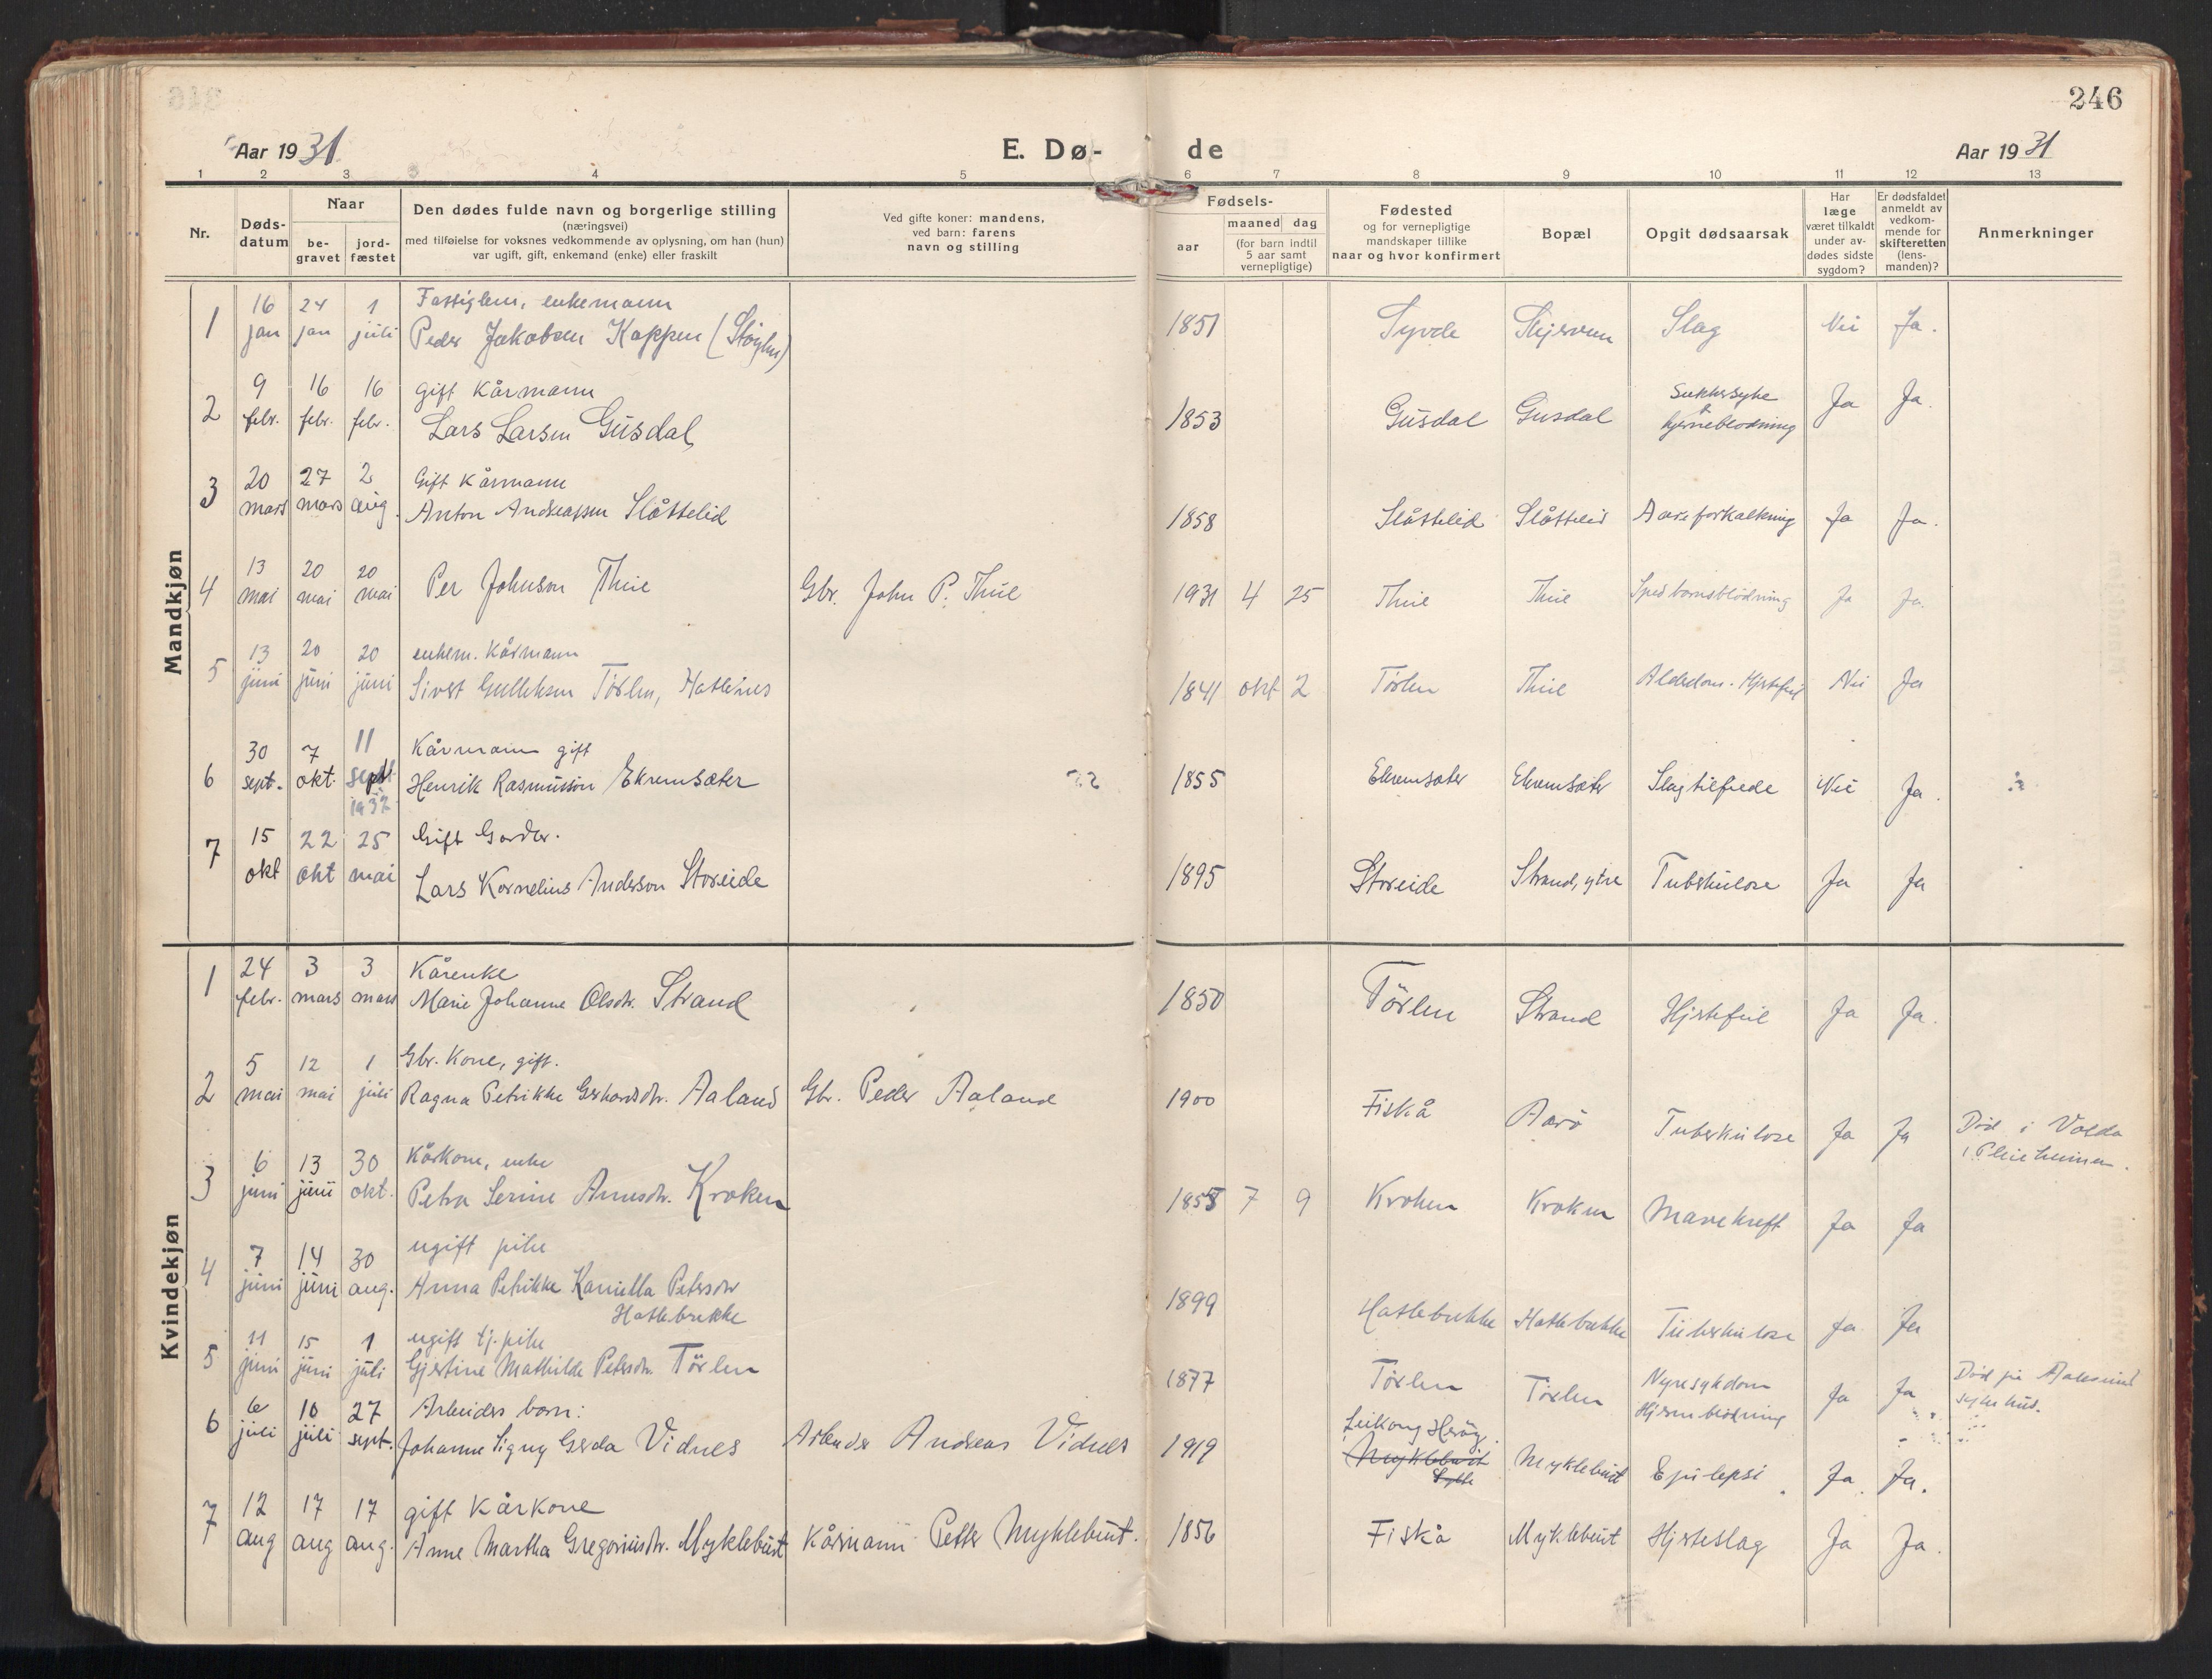 246
Aar 1931
E. Dø-
de
Aar 1931
1 2 3 4 5 6 7 8 9 10 11 12 13
Nr.
Døds-
datum
Naar
be-
gravet
jord-
fæstet
Den dødes fulde navn og borgerlige stilling
(næringsvei)
med tilføielse for voksnes vedkommende av oplysning, om han (hun)
var ugift, gift, enkemand (enke) eller fraskilt
Ved gifte koner: mandens,
ved barn: farens
navn og stilling
Fødsels-
aar
maaned dag
(for barn indtil
5 aar samt
vernepligtige)
Fødested
og for vernepligtige
mandskaper tillike
naar og hvor konfirmert
Bopæl
Opgit dødsaarsak
Har
læge
været tilkaldt
under av-
dødes sidste
sygdom?
Er dødsfaldet
anmeldt av
vedkom-
mende for
skifteretten
(lens-
manden)?
Anmerkninger
Mandkjøn
1 16 jan 24 jan 1 juli
enkemann
Peder Jakobsen Koppen
1851 Syvde Slag Nei Ja.
2 9 febr. 16 febr. 16 febr.
gift Kårmann
Lars Larsen Gusdal
1853 Gusdal Gusdal Sukkersyke & hjerneblødning Ja Ja.
3 20 mars 27 mars 2 aug.
Gift Kårmann
Anton Andreassen Slåttelid
1858 Slåttelid Slåttelid Aareforkalkning Ja Ja.
4 13 mai 20 mai 20 mai
Per Johnson Thue
Gbr. John P. Thue
1931 4 25 Thue Thue Spedbarnsblødning Ja Ja.
5 13 juni 20 juni 20 juni
enkem. Kårmann
Sivert Gulleksen Tørlen,
1841 okt 2 Tørlen Thue Alderdom. Hjertefeil Nei Ja
6 30 sept. 7 okt. 11 sept. 1932
Kårmann gift
Henrik Rasmusson Ekremsæter
1855 Ekremsæter Ekremsæter Slagtilfelle Nei Ja.
7 15 okt 22 okt 25 mai
Gift
Lars Kornelius Anderson Storeide
1895 Storeide Strand, ytre Tuberkulose Ja Ja
Kvindekjøn
1 24 febr. 3 mars 3 mars
Kårenke
Marie Johanne Olsdtr. Strand
1850 Tørlen Strand Hjertefeil Ja Ja.
2 5 mai 12 mai 1 juli
Gbr. Kone, gift.
Ragna Petrikke Gerhardsdtr. Aaland
Gbr. Peder Aaland
1900 Fiskå Aarø Tuberkulose Ja Ja
Død i Volda
i Pleieheimen.
3 6 juni 13 juni 30 okt.
Kårkone, enke
Petra Serine Arnesdtr. Kroken
1855 7 9 Kroken Kroken Mavekreft Ja Ja
4 7 juni 14 juni 30 aug.
ugift pike
Anna Petrikke Kamilla Petersdtr
Hatlebrekke
1899 Hatlebrekke Hatlebrekke Tuberkulose Ja Ja
5 11 juni 15 juni 1 juli
ugift tj. pike
Gjertine Mathilde Petersdtr. Tørlen
1877 Tørlen Tørlen Nyresykdom Hjerneblødning Ja Ja
Død på Aalesund
sykehus.
6 6 juli 10 juli 27 sept.
Arbeiders barn:
Johanne Signy Gerda Vidnes
Arbeider Andreas Vidnes
1919 Leikong Herøy. Myklebust Sylte Myklebust Epilepsi. Ja. Ja.
7 12 aug 17 aug 17 aug.
gift Kårkone
Anne Martha Gregoriusdtr. Myklebust
Kårmann Petter Myklebust.
1856 Fiskå Myklebust Hjerteslag Ja Ja.